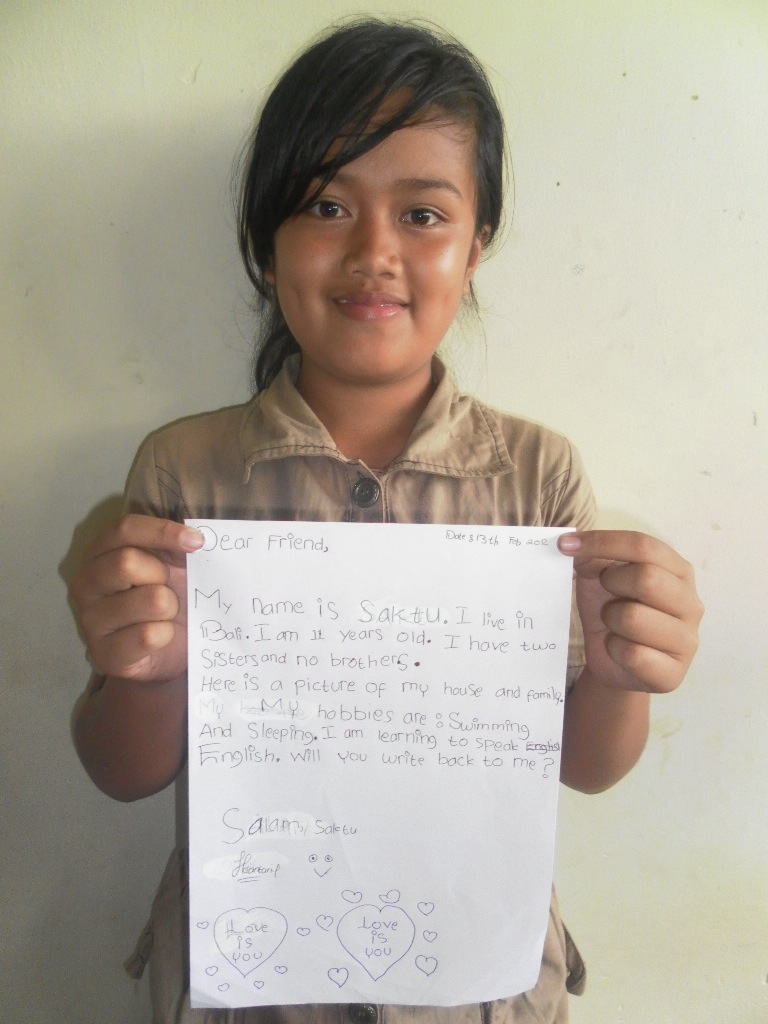 Dear Friend,
Date : 13th Feb
My name is Saktu. I live in
Bali. I am 11 years old. I have two
Sisters and no brothers.
Here is a picture of my house and family.
My My hobbies are : Swimming
And Sleeping. I am learning to speak English
English. Will you write back to me?
Salam, Saktu
Love
is
you
Love
is
you